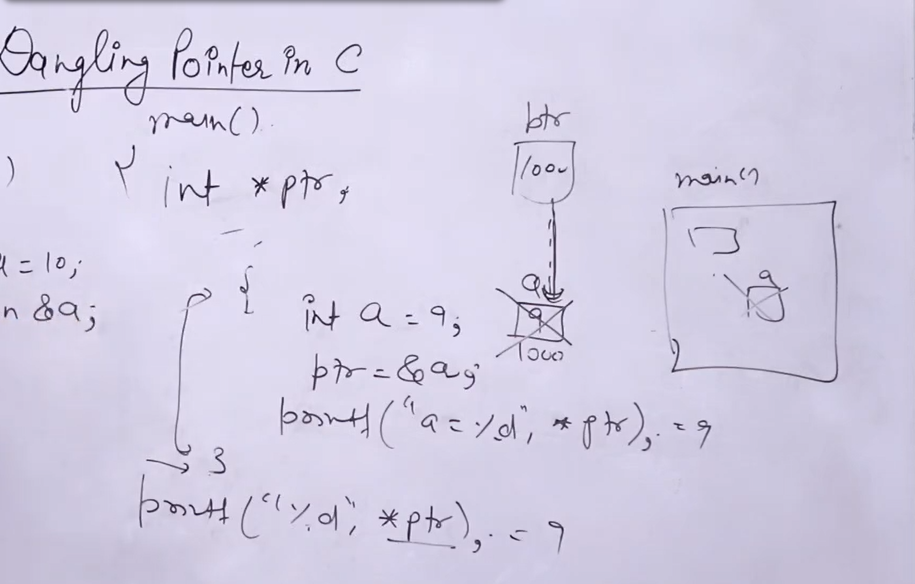 Dangling Pointer in C
main()
)
{ int *ptr;
= 10;
n &a;
{
int a = 9;
ptr = &a;
printf("a = %d", *ptr); = 9
}
printf("%d", *ptr); = 9
ptr
1000
a
9
1000
main()
a
9